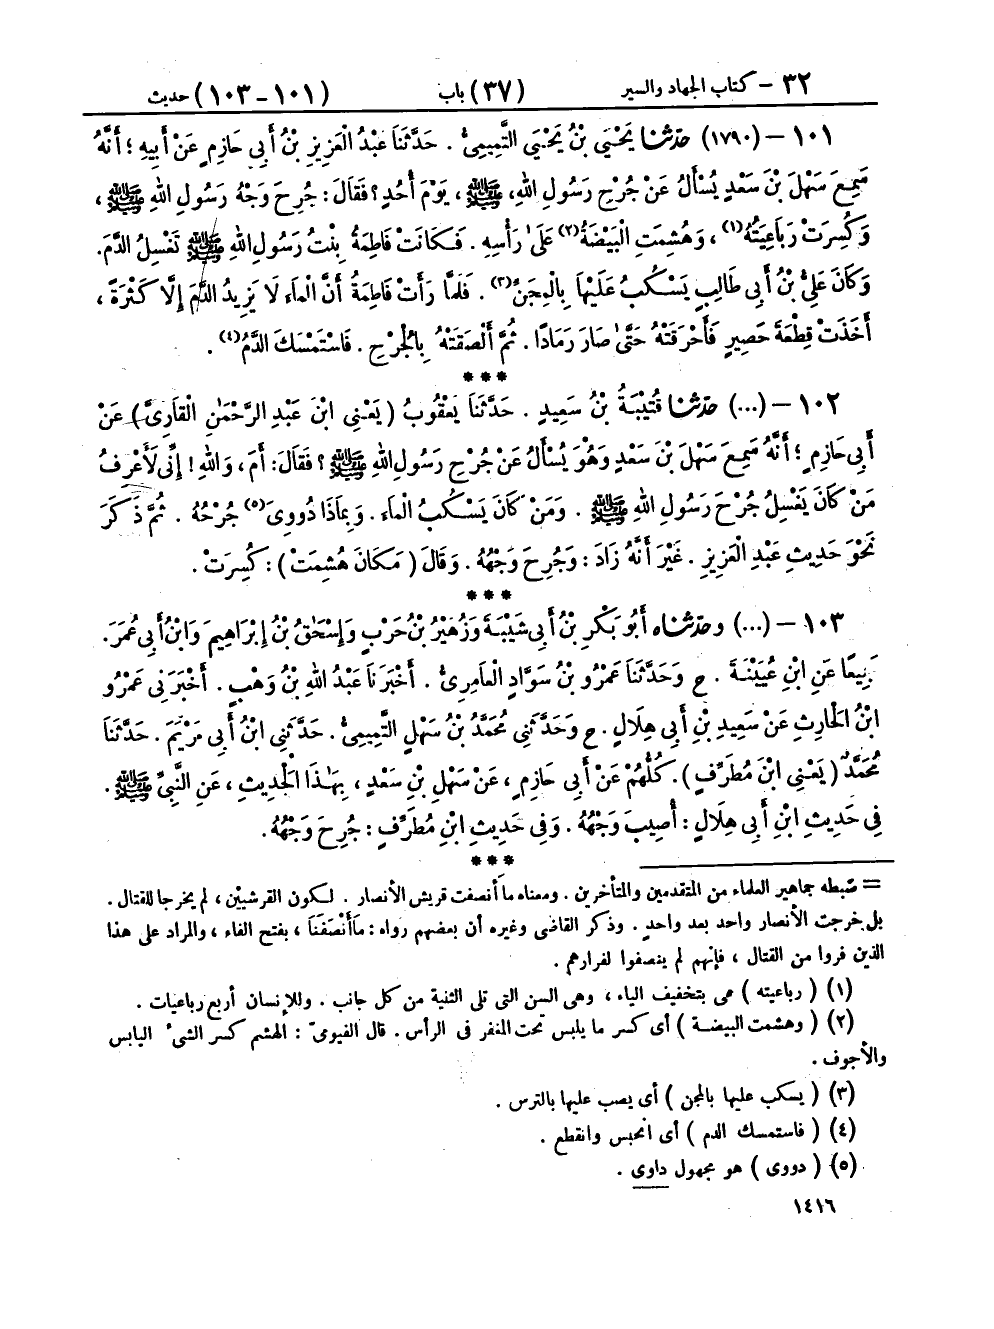 ٣٢ – كتاب الجهاد والسير (٣٧) باب (١٠١ – ١٠٣) حديث
١٠١ – (١٧٩٠) حَدَّثَنَا يَحْيَىٰ بْنُ يَحْيَىٰ التَّمِيمِىُّ . حَدَّثَنَا عَبْدُ الْعَزِيزِ بْنُ أَبِى حَازِمٍ عَنْ أَبِيهِ ؛ أَنَّهُ
سَمِعَ سَهْلَ بْنَ سَعْدٍ يُسْأَلُ عَنْ جُرْحِ رَسُولِ اللهِ، ﷺ ، يَوْمَ أُحُدٍ ؟ فَقَالَ : جُرِحَ وَجْهُ رَسُولِ اللهِ ﷺ ،
وَكُسِرَتْ رَبَاعِيَتُهُ(١) ، وَهُشِمَتِ الْبَيْضَةُ(٢) عَلَىٰ رَأْسِهِ . فَكَانَتْ فَاطِمَةُ بِنْتُ رَسُولِ اللهِ ﷺ تَغْسِلُ الدَّمَ.
وَكَانَ عَلِىُّ بْنُ أَبِى طَالِبٍ يَسْكُبُ عَلَيْهَا بِالْمِجَنِّ(٣) . فَلَمَّا رَأَتْ فَاطِمَةُ أَنَّ الْمَاءَ لَا يَزِيدُ الدَّمَ إِلَّا كَثْرَةً ،
أَخَذَتْ قِطْعَةَ حَصِيرٍ فَأَحْرَقَتْهُ حَتَّىٰ صَارَ رَمَادًا . ثُمَّ أَلْصَقَتْهُ بِالْجُرْحِ . فَاسْتَمْسَكَ الدَّمُ(٤) .
***
١٠٢ – (...) حَدَّثَنَا قُتَيْبَةُ بْنُ سَعِيدٍ . حَدَّثَنَا يَعْقُوبُ ( يَعْنِى ابْنَ عَبْدِ الرَّحْمَٰنِ الْقَارِىَّ) عَنْ
أَبِى حَازِمٍ ؛ أَنَّهُ سَمِعَ سَهْلَ بْنَ سَعْدٍ وَهُوَ يُسْأَلُ عَنْ جُرْحِ رَسُولِ اللهِ ﷺ ؟ فَقَالَ: أَمَ، وَاللهِ ! إِنِّى لَأَعْرِفُ
مَنْ كَانَ يَغْسِلُ جُرْحَ رَسُولِ اللهِ ﷺ . وَمَنْ كَانَ يَسْكُبُ الْمَاءَ . وَبِمَاذَا دُووِىَ(٥) جُرْحُهُ . ثُمَّ ذَكَرَ
نَحْوَ حَدِيثِ عَبْدِ الْعَزِيزِ . غَيْرَ أَنَّهُ زَادَ : وَجُرِحَ وَجْهُهُ . وَقَالَ ( مَكَانَ هُشِمَتْ ) : كُسِرَتْ .
***
١٠٣ – (...) وحَدَّثَنَاه أَبُو بَكْرِ بْنُ أَبِى شَيْبَةَ وَزُهَيْرُ بْنُ حَرْبٍ وَإِسْحَٰقُ بْنُ إِبْرَاهِيمَ وَابْنُ أَبِى عُمَرَ .
جَمِيعًا عَنِ ابْنِ عُيَيْنَةَ . ح وَحَدَّثَنَا عَمْرُو بْنُ سَوَّادٍ الْعَامِرِىُّ . أَخْبَرَنَا عَبْدُ اللهِ بْنُ وَهْبٍ . أَخْبَرَنِى عَمْرُو
ابْنُ الْحَارِثِ عَنْ سَعِيدِ بْنِ أَبِى هِلَالٍ . ح وَحَدَّثَنِى مُحَمَّدُ بْنُ سَهْلٍ التَّمِيمِىُّ . حَدَّثَنِى ابْنُ أَبِى مَرْيَمَ . حَدَّثَنَا
مُحَمَّدٌ ( يَعْنِى ابْنَ مُطَرِّفٍ ) . كُلُّهُمْ عَنْ أَبِى حَازِمٍ ، عَنْ سَهْلِ بْنِ سَعْدٍ ، بِهَٰذَا الْحَدِيثِ ، عَنِ النَّبِىِّ ﷺ .
فِى حَدِيثِ ابْنِ أَبِى هِلَالٍ : أُصِيبَ وَجْهُهُ . وَفِى حَدِيثِ ابْنِ مُطَرِّفٍ : جُرِحَ وَجْهُهُ.
***
= ضبطه جماهير العلماء من المتقدمين والمتأخرين . ومعناه ما أنصفت قريش الأنصار . لكون القرشيين ، لم يخرجا للقتال .
بل خرجت الأنصار واحد بعد واحدٍ . وذكر القاضى وغيره أن بعضهم رواه : مَا أَنْصَفَنَا ، بفتح الفاء ، والمراد على هذا
الذين فروا من القتال ، فإنهم لم ينصفوا لفرارهم .
(١) ( رباعيته ) هى بتخفيف الياء ، وهى السن التى تلى الثنية من كل جانب . وللإنسان أربع رباعيات .
(٢) ( وهشمت البيضة ) أى كسر ما يلبس تحت المغفر فى الرأس . قال الفيومىّ : الهشم كسر الشىء اليابس
والأجوف .
(٣) ( يسكب عليها بالمجن ) أى يصب عليها بالترس .
(٤) ( فاستمسك الدم ) أى انحبس وانقطع .
(٥) ( دووى ) هو مجهول داوى .
١٤١٦